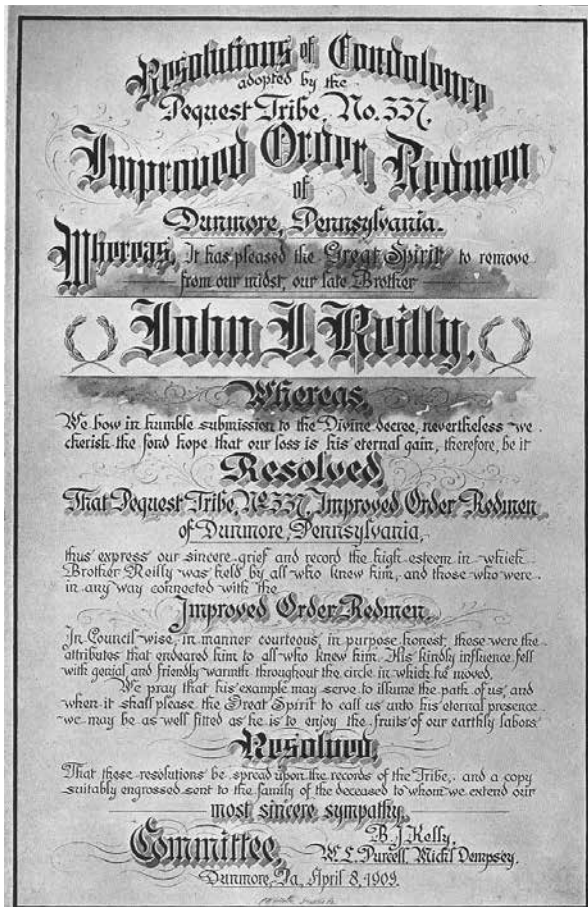 Resolutions of Condolence
adopted by the
Pequest Tribe, No. 337,
Improved Order, Redmen
of
Dunmore, Pennsylvania.
Whereas, It has pleased the Great Spirit to remove
from our midst, our late Brother
John J. Reilly,
Whereas,
We bow in humble submission to the Divine decree, nevertheless we
cherish the fond hope that our loss is his eternal gain, therefore, be it
Resolved,
That Pequest Tribe, No. 337, Improved Order Redmen
of Dunmore, Pennsylvania,
thus express our sincere grief and record the high esteem in which
Brother Reilly was held by all who knew him, and those who were
in any way connected with the
Improved Order Redmen.
In Council wise, in manner courteous, in purpose honest, these were the
attributes that endeared him to all who knew him. His kindly influence fell
with genial and friendly warmth throughout the circle in which he moved.
We pray that his example may serve to illume the path of us, and
when it shall please the Great Spirit to call us unto his eternal presence
we may be as well fitted as he is to enjoy the fruits of our earthly labors.
Resolved,
That these resolutions be spread upon the records of the Tribe, and a copy
suitably engrossed sent to the family of the deceased to whom we extend our
most sincere sympathy.
Committee, B. J. Kelly,
W. L. Purcell, Mich'l Dempsey.
Dunmore, Pa, April 8, 1909.